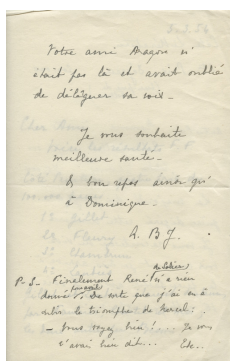 Votre ami Aragon n'
était pas là et avait oublié
de déléguer sa voix_
Je vous souhaite
meilleure santé_
& bon repos ainsi qu'
à Dominique_
A. B J.
P.S_ Finalement René n'a rien
donné. De sorte que j'ai eu à
subir le triomphe de :
_ Vous voyez bien !... Je vous
l'avais bien dit... Etc..